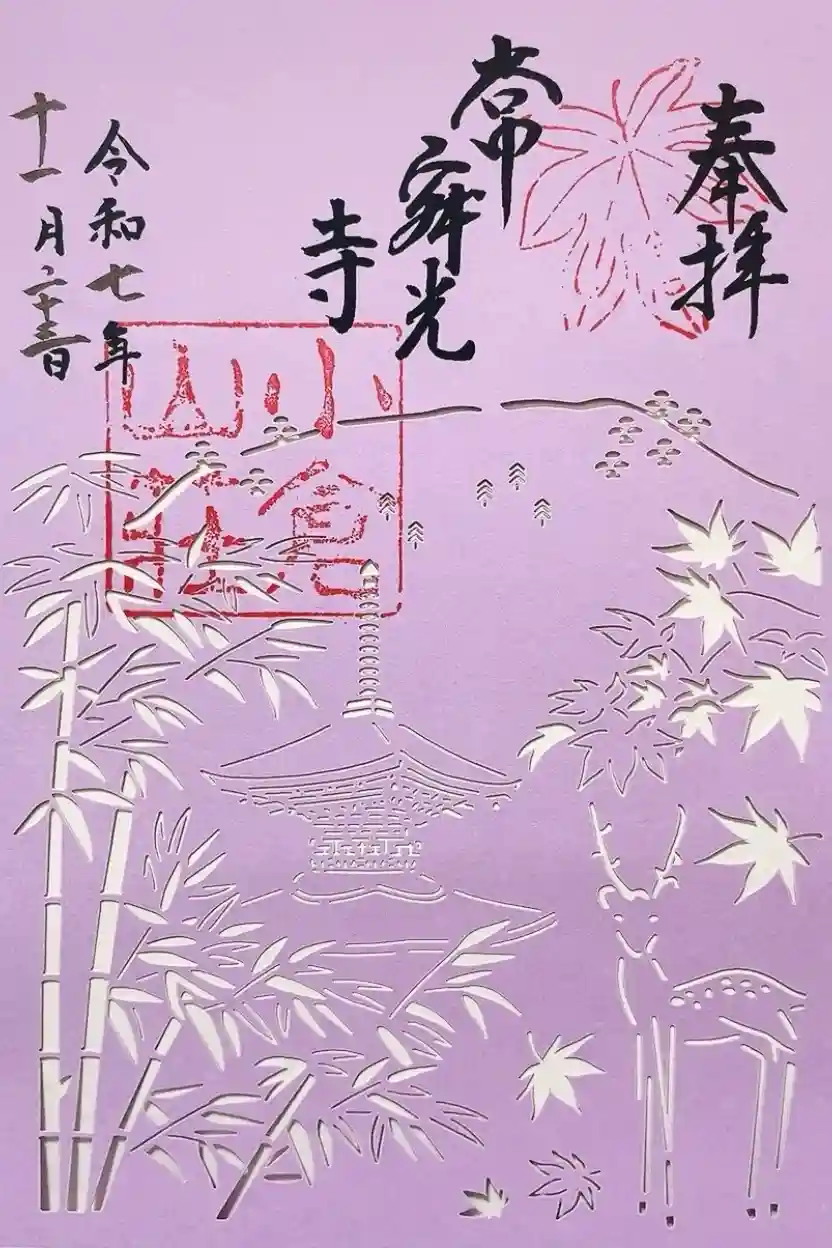 奉拝
常寂光寺
令和七年
十一月二十三日
小倉
山